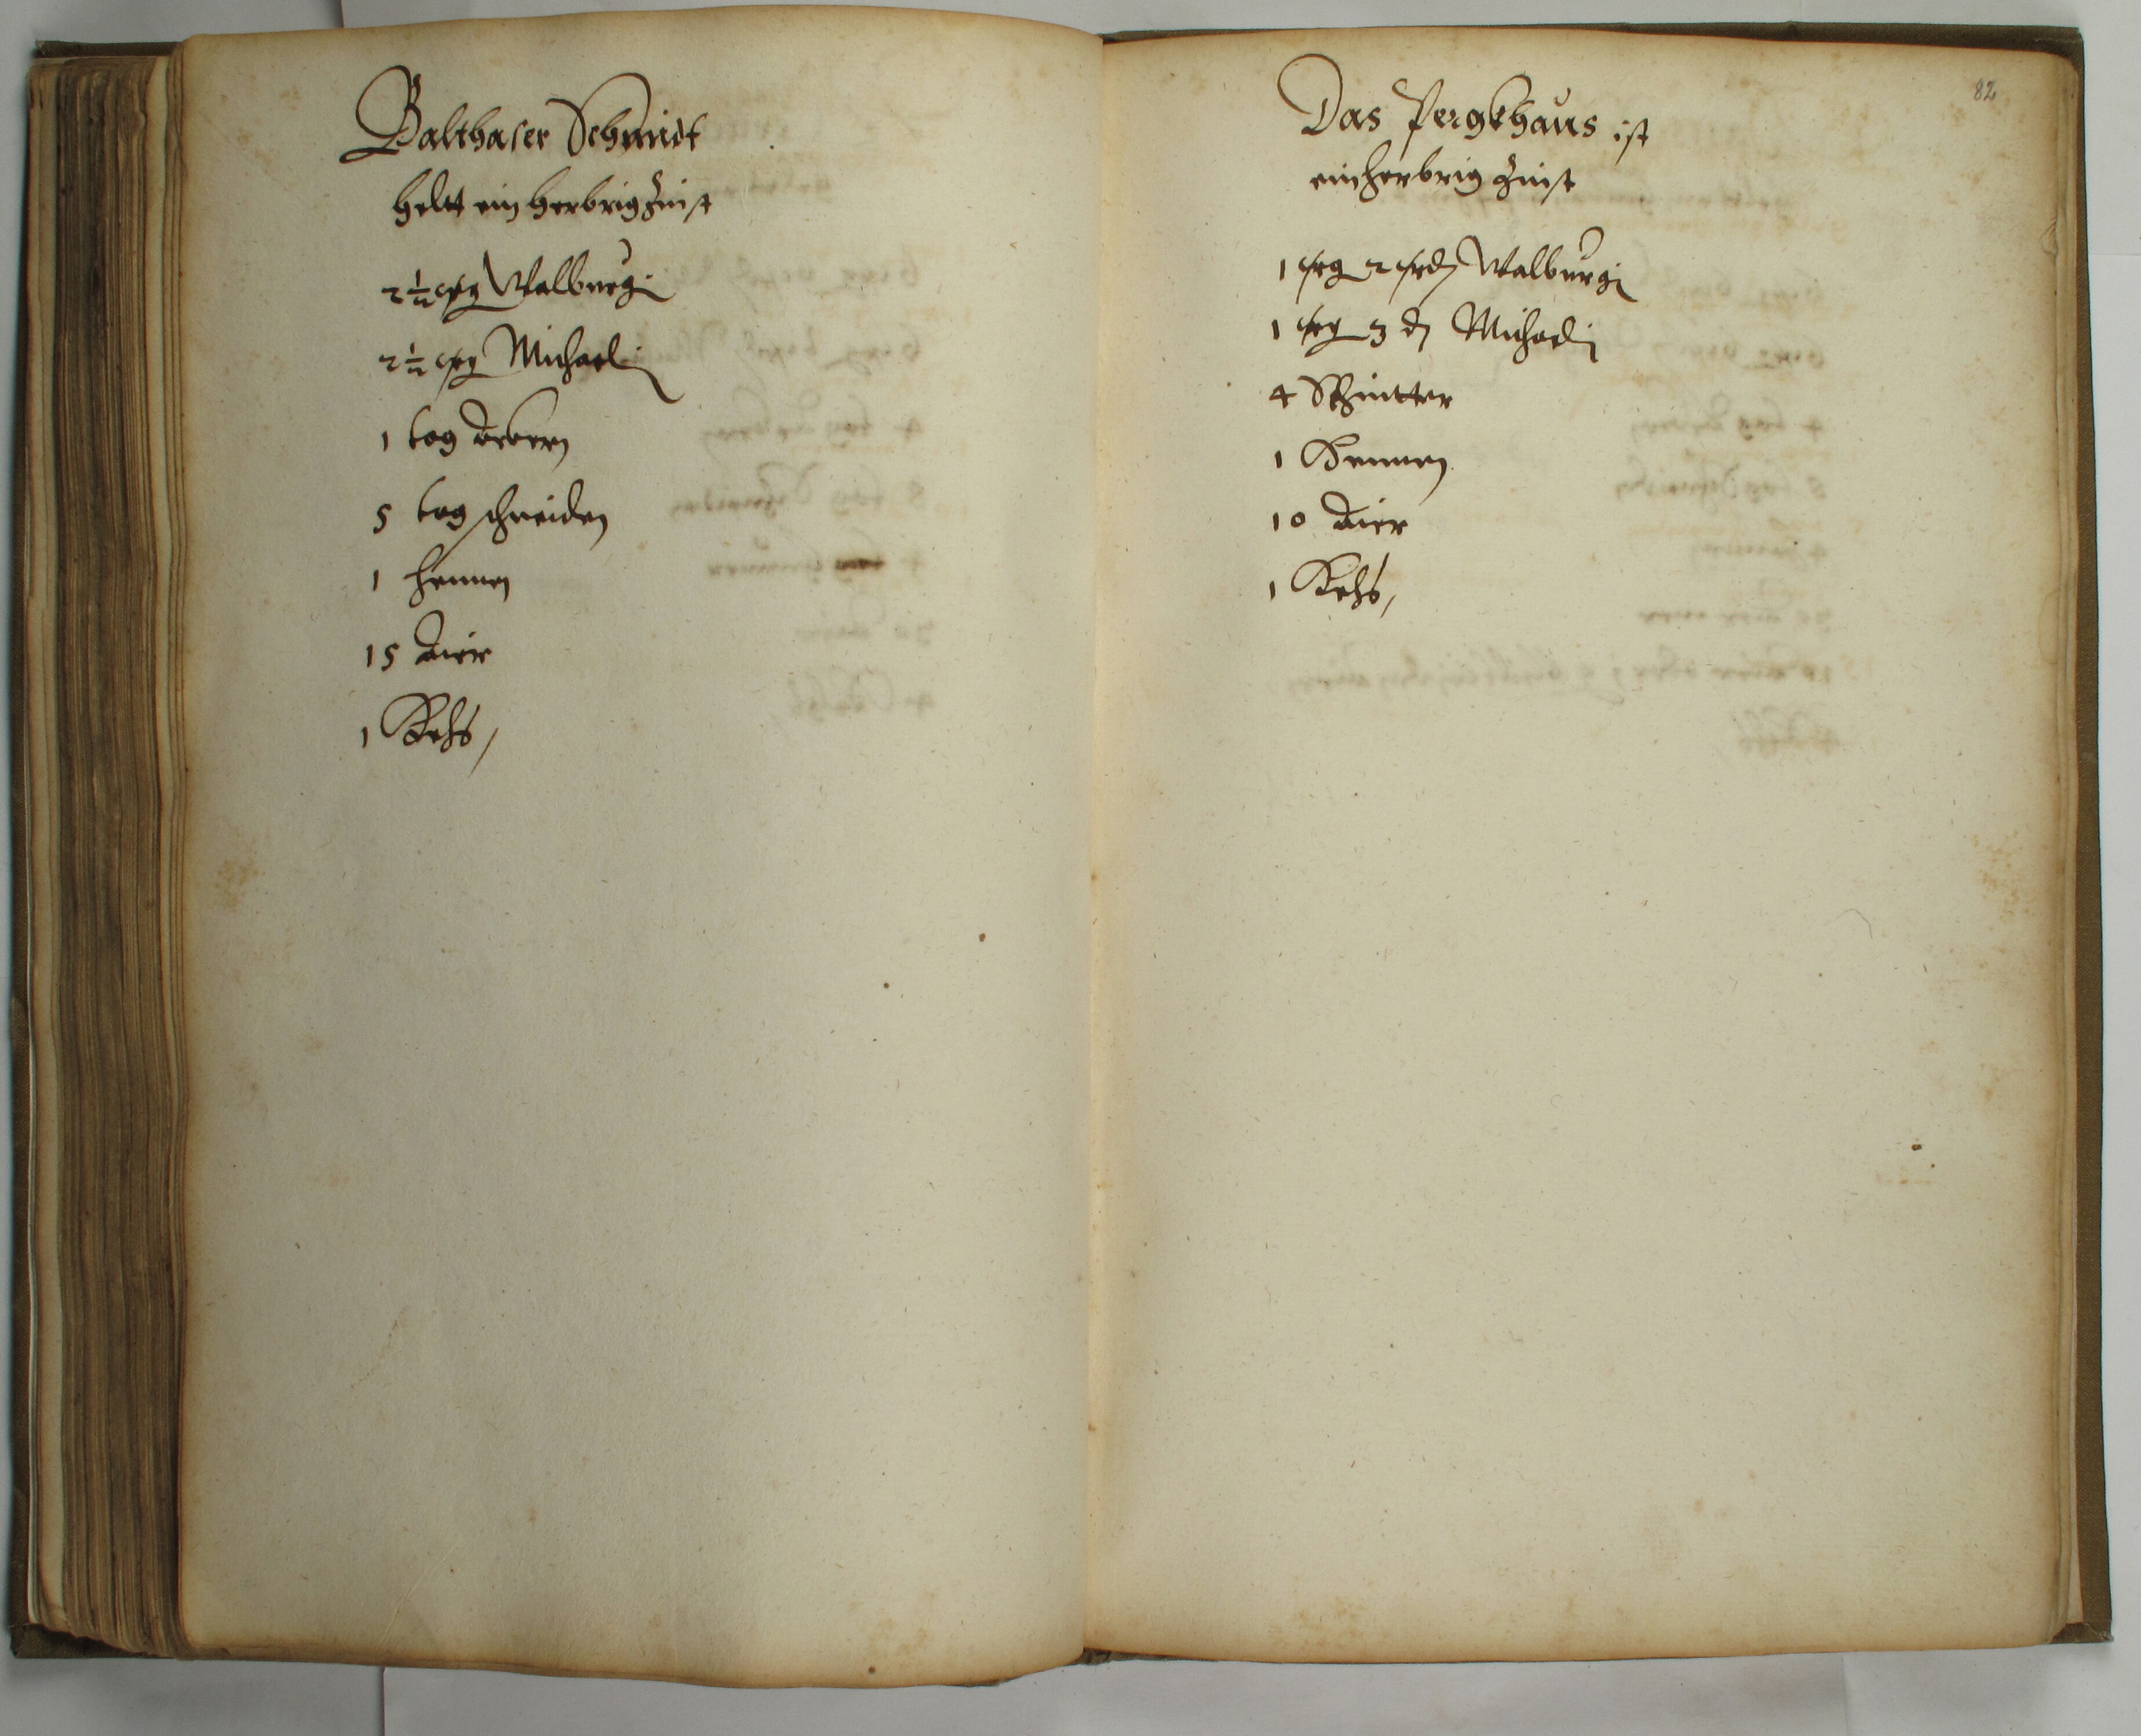 Balthaser Schmidt
heltt ein herbrig Zinst
2½ gr Walburgi
2½ gr Michaeli
1 tag Arbern
5 tag schneiden
1 hennen
15 Aier
1 Kehs,
82
Das Pergkhaus ist
ein herbrig Zinst
1 gr 2 d Walburgi
1 gr 3 d Michaeli
4 Schnitter
1 Hennen
10 Aier
1 Kehs,